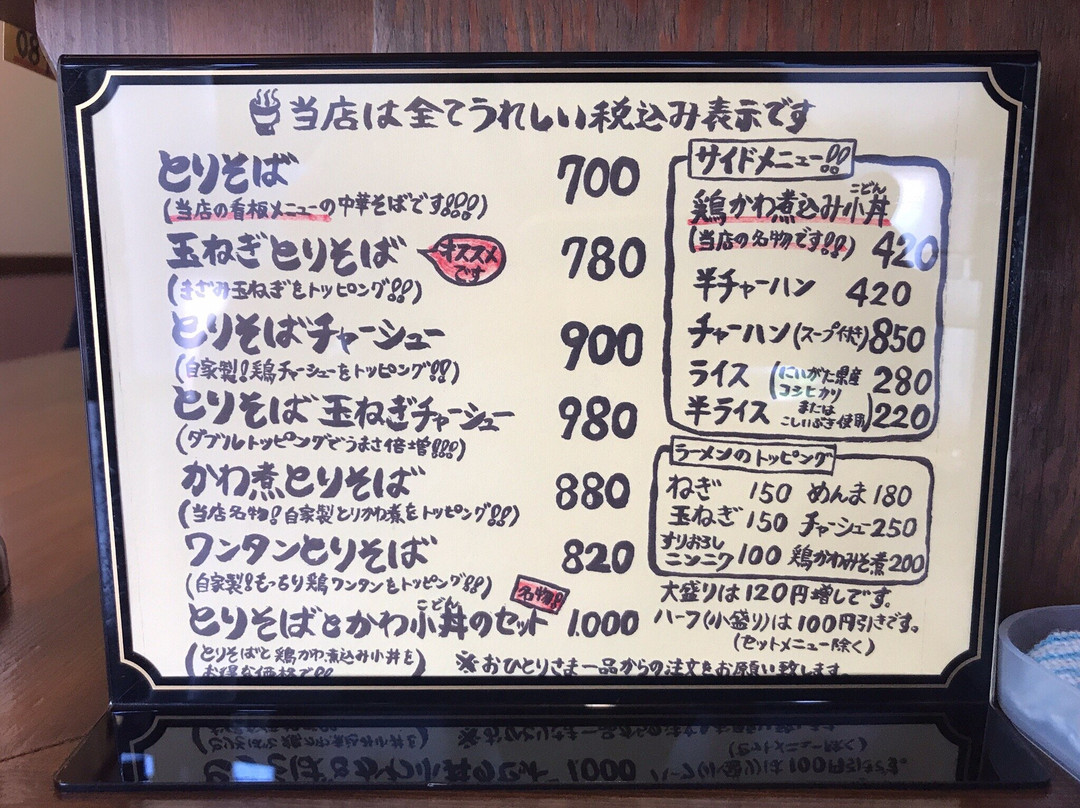 08
当店は全てうれしい税込み表示です
とりそば 700
(当店の看板メニューの中華そばです!!!!)
玉ねぎとりそば オススメです 780
(きざみ玉ねぎをトッピング!!)
とりそばチャーシュー 900
(自家製!鶏チャーシューをトッピング!!)
とりそば玉ねぎチャーシュー 980
(ダブルトッピングでうまさ倍増!!!)
かわ煮とりそば 880
(当店名物!自家製とりかわ煮をトッピング!!)
ワンタンとりそば 820
(自家製!もっちり鶏ワンタンをトッピング!!)
名物!!
とりそばとかわ小丼のセット 1.000
こどん
(とりそばと鶏かわ煮込み小丼を
お得な価格で!!)
サイドメニュー!!
鶏かわ煮込み小丼
こどん
(当店の名物です!!) 420
半チャーハン 420
チャーハン(スープ付き) 850
ライス 280
半ライス 220
(にいがた県産
コシヒカリ
または
こしいぶき使用)
ラーメンのトッピング
ねぎ 150 めんま 180
玉ねぎ 150 チャーシュー 250
すりおろし
ニンニク 100 鶏かわみそ煮 200
大盛りは120円増しです。
ハーフ(小盛り)は100円引きです。
(セットメニュー除く)
※おひとりさま一品からの注文をお願い致します。